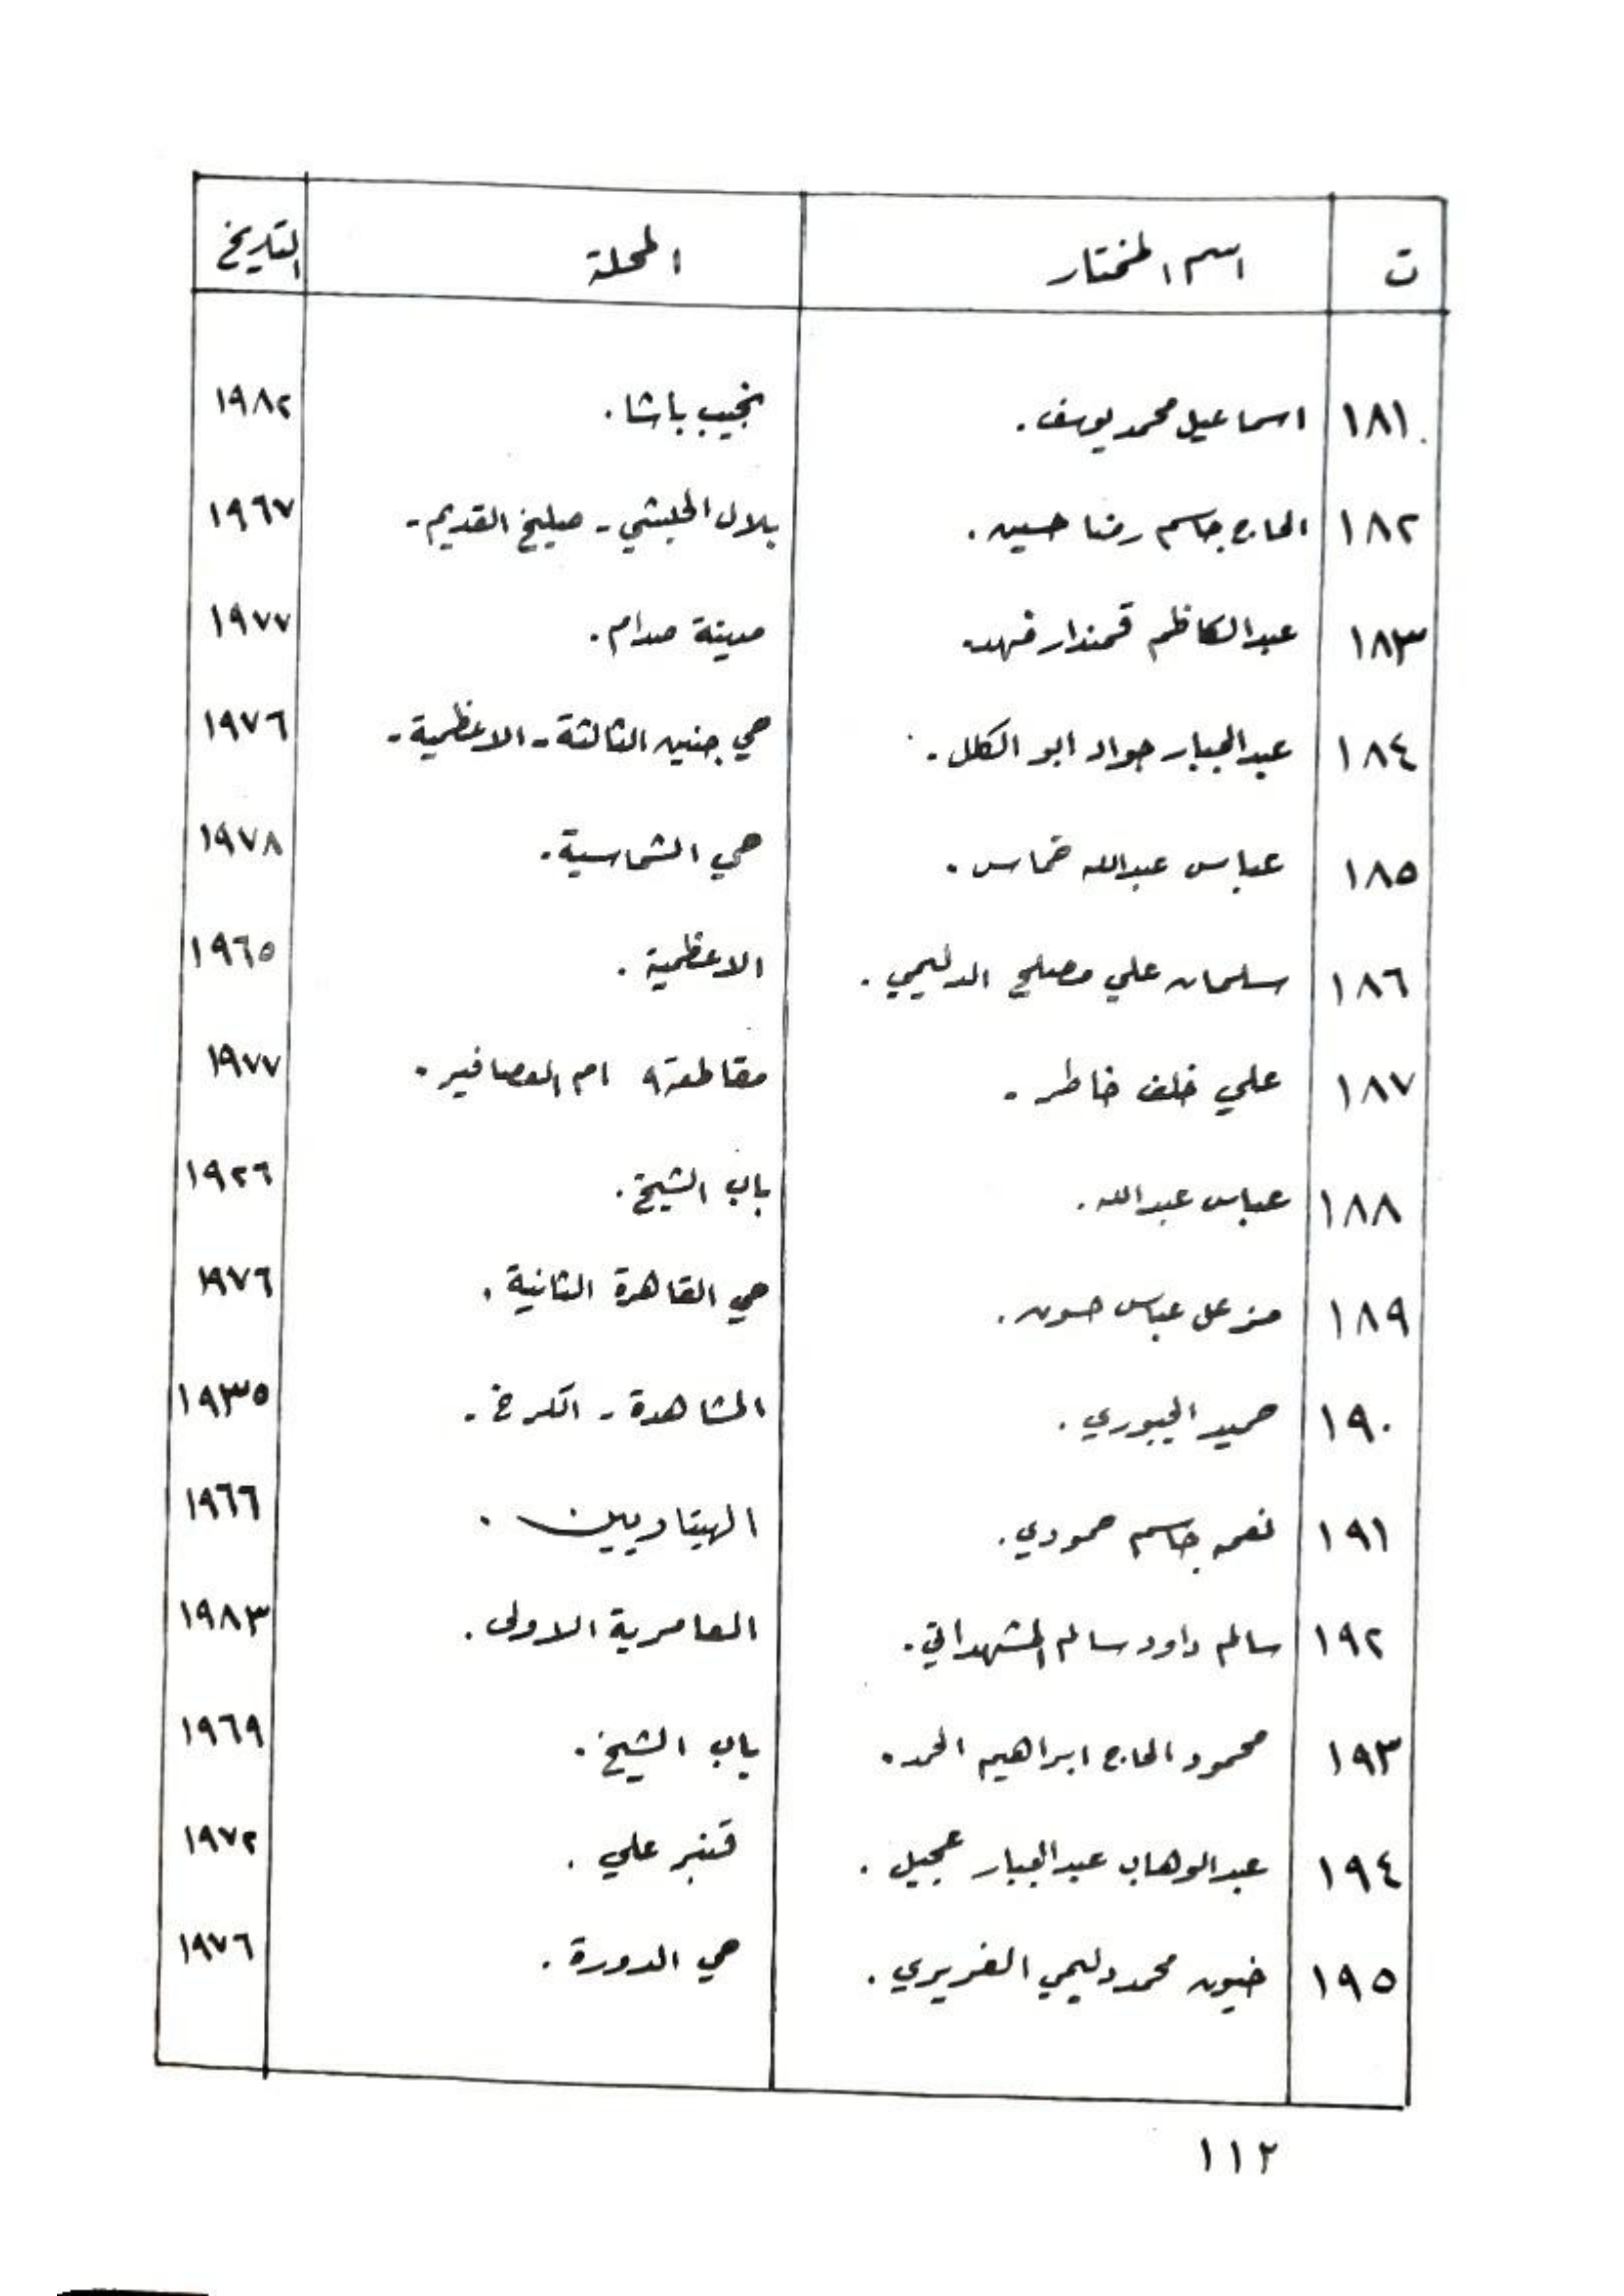 ت اسم المختار المحلة التاريخ
١٨١ اسماعيل محمد يوسف. نجيب باشا. ١٩٨٢
١٨٢ الحاج جاسم رضا حسين. بلال الحبشي - صليخ القديم - ١٩٦٧
١٨٣ عبدالكاظم قمندار فهد. مدينة صدام. ١٩٧٧
١٨٤ عبدالجبار جواد ابو الكلل. حي جنين الثالثة - الاعظمية - ١٩٧٦
١٨٥ عباس عبدالله خماس. حي الشماسية. ١٩٧٨
١٨٦ سلمان علي مصلح الدليمي. الاعظمية. ١٩٦٥
١٨٧ علي خلف خاطر. مقاطعة ٩ ام العصافير. ١٩٧٧
١٨٨ عباس عبدالله. باب الشيخ. ١٩٢٦
١٨٩ مزعل عباس حسون. حي القاهرة الثانية. ١٩٧٦
١٩٠ حميد الجبوري. المشاهدة - الكرخ - ١٩٣٥
١٩١ نعمه جاسم حمودي. الهيتاويين. ١٩٦٦
١٩٢ سالم داود سالم المشهداني. العامرية الاولى. ١٩٨٣
١٩٣ محمود الحاج ابراهيم الحمد. باب الشيخ. ١٩٦٩
١٩٤ عبدالوهاب عبدالجبار عجيل. قنبر علي. ١٩٧٢
١٩٥ خيون محمد دليمي الغريري. حي الدورة. ١٩٧٦
١١٢